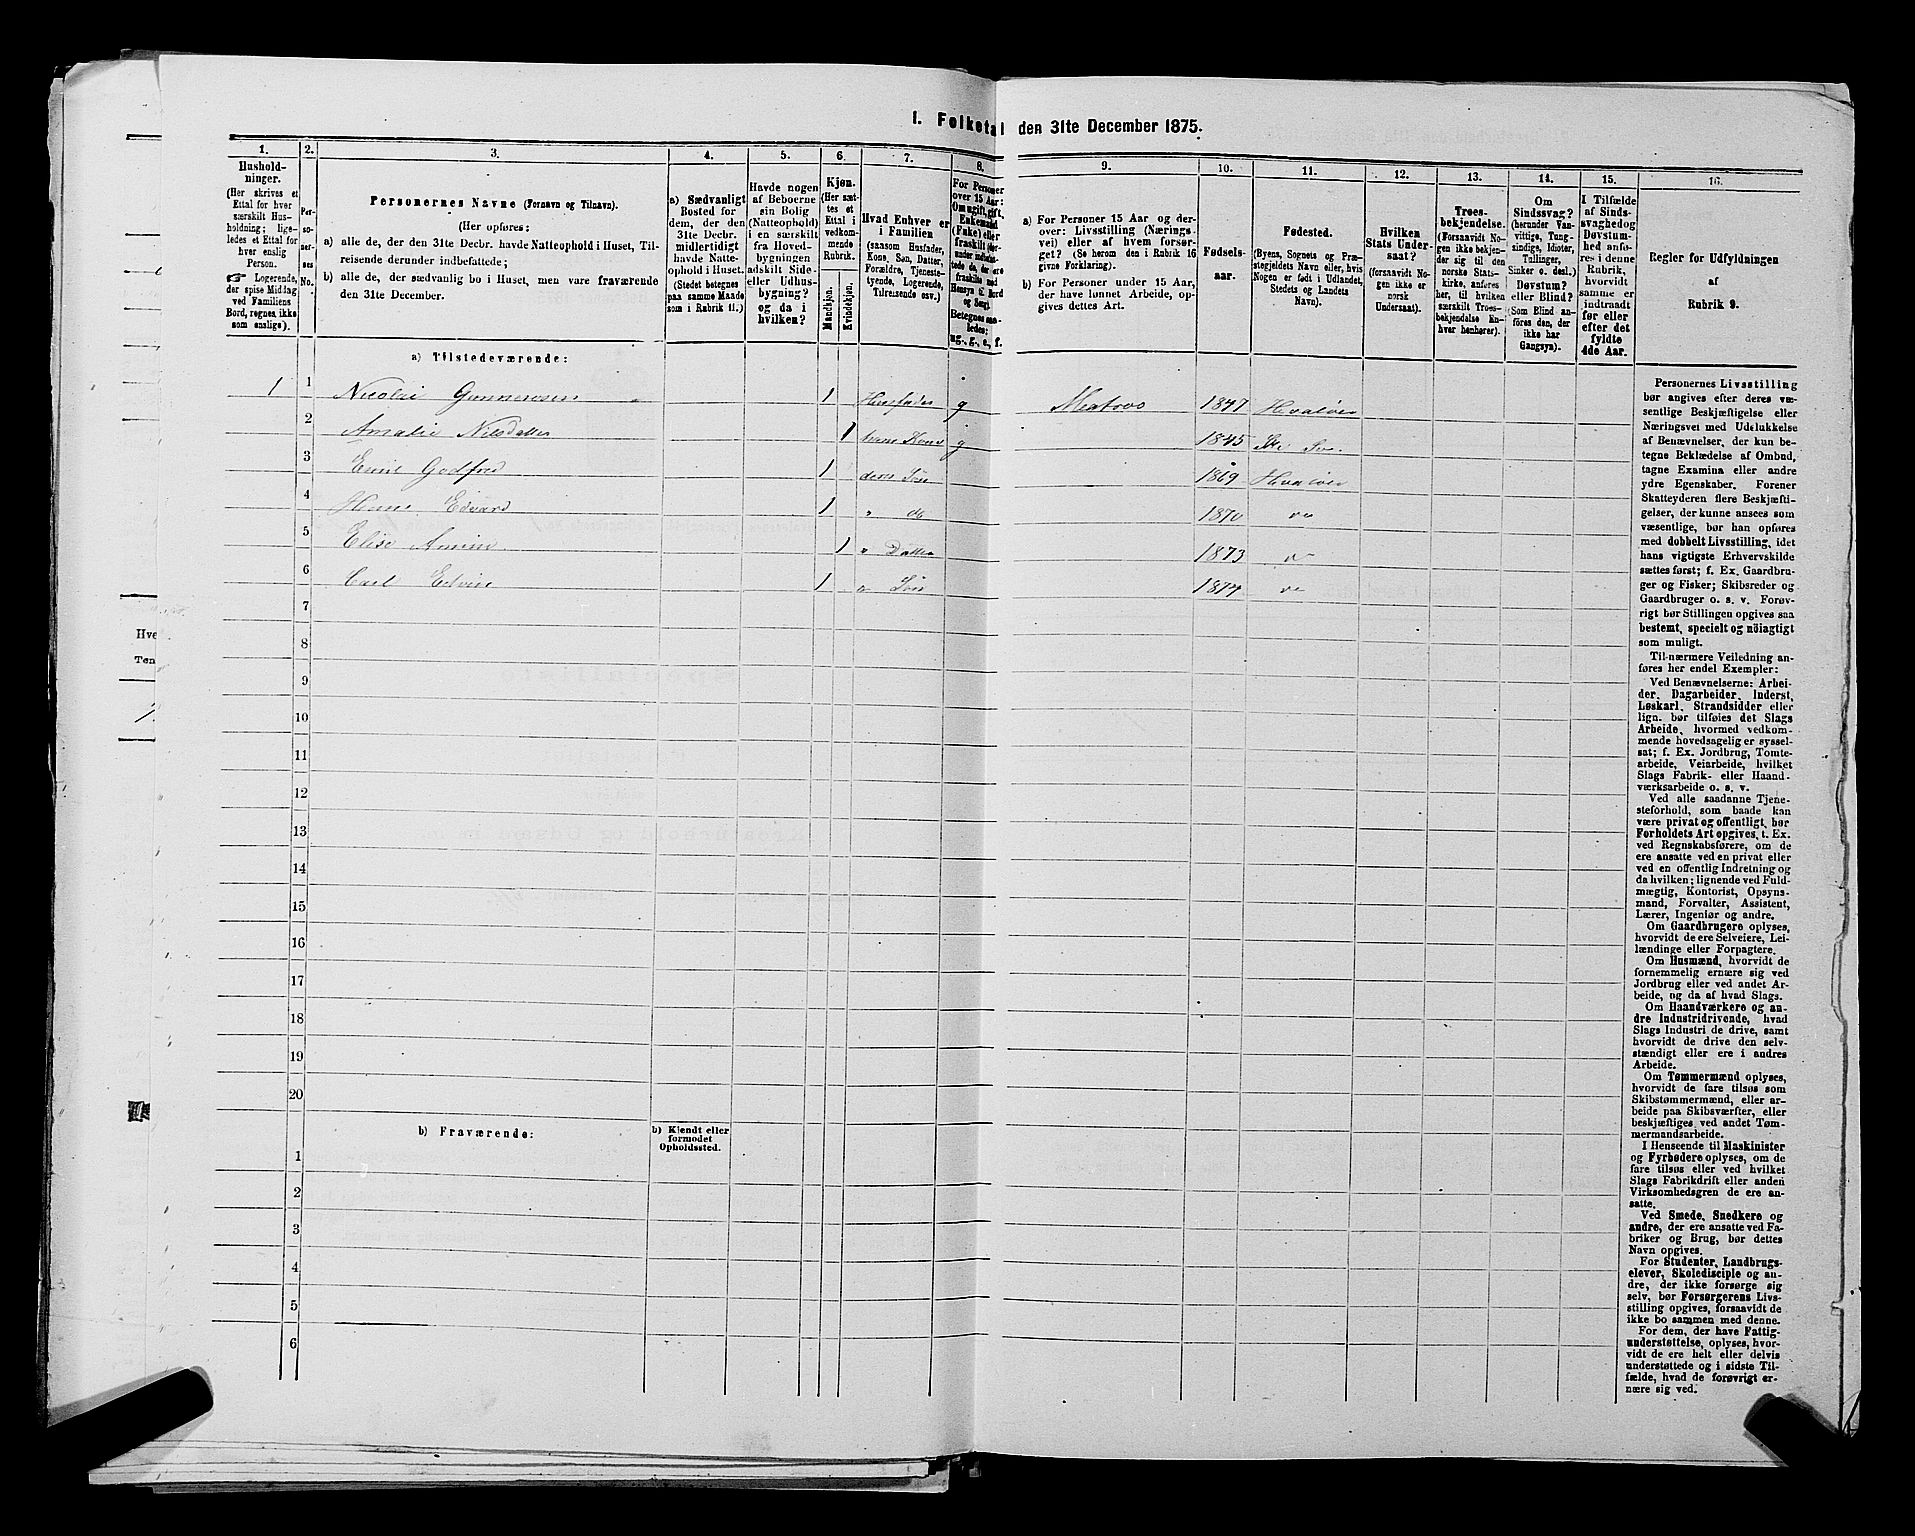 I. Folketal den 31te December 1875.
1. 2. 3. 4. 5. 6. 7. 8. 9. 10. 11. 12. 13. 14. 15. 16.
Hushold-
ninger.
(Her skrives et
Ettal for hver
særskilt Hus-
holdning; lige-
ledes et Ettal for
hver enslig
Person.
Logerende,
der spise Middag
ved Familiens
Bord, regnes ikke
som enslige).
Per-
so-
ner-
nes
No.
Personernes Navne (Fornavn og Tilnavn).
(Her opføres:
a) alle de, der den 31te Decbr. havde Natteophold i Huset, Til-
reisende derunder indbefattede;
b) alle de, der sædvanlig bo i Huset, men vare fraværende
den 31te December.
a) Sædvanligt
Bosted for
dem, der den
31te Decbr.
midlertidigt
havde Natte-
ophold i Huset.
(Stedet betegnes
paa samme Maade
som i Rubrik 11.)
Havde nogen
af Beboerne
sin Bolig
(Natteophold)
i en særskilt
fra Hoved-
bygningen
adskilt Side-
eller Udhus-
bygning?
og da i
hvilken?
Kjøn.
(Her sæt-
tes et
Ettal i
vedkom-
mende
Rubrik.
Mandkjøn.
Kvindekjøn.
Hvad Enhver er
i Familien
(saasom Husfader,
Kone, Søn, Datter,
Forældre, Tjeneste-
tyende, Logerende,
Tilreisende osv.)
For Personer
over 15 Aar:
Om ugift, gift,
Enkemand
(Enke) eller
fraskilt
Betegnes saa-
ledes:
ug., g., e., f.
a) For Personer 15 Aar og der-
over: Livsstilling (Nærings-
vei) eller af hvem forsør-
get? (Se herom den i Rubrik 16
givne Forklaring).
b) For Personer under 15 Aar,
der have lønnet Arbeide, op-
gives dettes Art.
Fødsels-
aar.
Fødested.
(Byens, Sognets og Præ-
stegjeldets Navn eller, hvis
Nogen er født i Udlandet,
Stedets og Landets
Navn).
Hvilken
Stats Under-
saat?
(forsaavidt No-
gen ikke er
norsk
Undersaat).
Troes-
bekjendelse.
(Forsaavidt No-
gen ikke bekjen-
der sig til den
norske Stats-
kirke, anføres
her, til hvilken
særskilt Troes-
bekjendelse En-
hver henhører).
Om
Sindssvag?
(herunder Van-
vittige, Tung-
sindige, Idioter,
Tullinger,
Sinker o. desl.)
Døvstum?
eller Blind?
(Som Blind an-
føres den, der
ikke har
Gangsyn).
I Tilfælde
af Sinds-
svaghed og
Døvstum-
hed anfø-
res i denne
Rubrik,
hvorvidt
samme er
indtraadt
før eller
efter det
fyldte
4de Aar.
Regler for Udfyldningen
af
Rubrik 9.
a) Tilstedeværende:
1 1 Nicolai Gunnersen 1 Husfader g Matros 1847 Hvaløer
2 Amalie Nilsdatter 1 hans Kone g 1845
3 Emil Godfred 1 deres Søn 1869 Hvaløer
4 Hans Edvard 1 " do 1870 do
5 Elise 1 " Datter 1873 do
6 Carl Edvin 1 " Søn 1874 do
7
8
9
10
11
12
13
14
15
16
17
18
19
20
b) Fraværende:
b) Kjendt eller
formodet
Opholdssted.
1
2
3
4
5
6
Personernes Livsstilling
bør angives efter deres væ-
sentlige Beskjæftigelse eller
Næringsvei med Udelukkelse
af Benævnelser, der kun be-
tegne Beklædelse af Ombud,
tagne Examina eller andre
ydre Egenskaber. Forener
Skatteyderen flere Beskjæfti-
gelser, der kunne ansees som
væsentlige, bør han opføres
med dobbelt Livsstilling, idet
hans vigtigste Erhvervskilde
sættes først; f. Ex. Gaardbru-
ger og Fisker; Skibsreder og
Gaardbruger o. s. v. Forøv-
rigt bør Stillingen opgives saa
bestemt, specielt og nöiagtigt
som muligt.
Til nærmere Veiledning an-
føres her endel Exempler:
Ved Benævnelserne: Arbei-
der, Dagarbeider, Inderst,
Løskarl, Strandsidder eller
lign. bør tilføies det Slags
Arbeide, hvormed vedkom-
mende hovedsagelig er syssel-
sat; f. Ex. Jordbrug, Tomte-
arbeide, Veiarbeide, hvilket
Slags Fabrik- eller Haand-
værksarbeide o. s. v.
Ved alle saadanne Tjene-
steforhold, som baade kan
være privat og offentligt, bør
Forholdets Art opgives, t. Ex.
ved Regnskabsførere, om de
ere ansatte ved en privat eller
ved en offentlig Indretning og
da hvilken; lignende ved Fuld-
mægtig, Kontorist, Opsyns-
mand, Forvalter, Assistent,
Lærer, Ingeniør og andre.
Om Gaardbrugere oplyses,
hvorvidt de ere Selveiere, Lei-
lændinge eller Forpagtere.
Om Husmænd, hvorvidt de
fornemmelig ernære sig ved
Jordbrug eller ved andet Ar-
beide, og da af hvad Slags.
Om Haandværkere og an-
dre Industridrivende, hvad
Slags Industri de drive, samt
hvorvidt de drive den selv-
stændigt eller ere i andres
Arbeide.
Om Tømmermænd oplyses,
hvorvidt de fare tilsøs som
Skibstømmermænd, eller ar-
beide paa Skibsværfter, eller
beskjæftiges ved andet Tøm-
mermandsarbeide.
I Henseende til Maskinister
og Fyrbødere oplyses, om de
fare tilsøs eller ved hvilket
Slags Fabrikdrift eller anden
Virksomhedsgren de ere an-
satte.
Ved Smede, Snedkere og
andre, der ere ansatte ved Fa-
briker og Brug, bør dettes
Navn opgives.
For Studenter, Landbrugs-
elever, Skoledisciple og an-
dre, der ikke forsørge sig
selv, bør Forsørgerens Livs-
stilling opgives, forsaavidt de
ikke bo sammen med denne.
For dem, der have Fattig-
understøttelse, oplyses, hvor-
vidt de ere helt eller delvis
understøttede og i sidste Til-
fælde, hvad de forøvrigt er-
nære sig ved.
Hve
Tøn